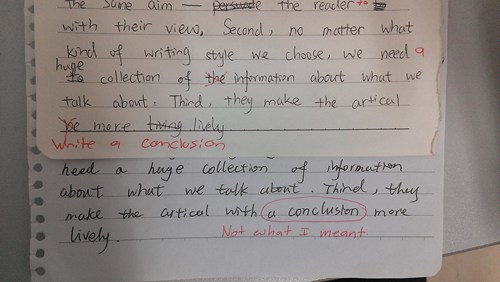 the same aim — persuade the reader to
with their view. Second, no matter what
kind of writing style we choose, we need a
huge
collection of the information about what we
talk about. Third, they make the artical
more living lively
Write a conclusion
need a huge collection of information
about what we talk about. Third, they
make the artical with a conclusion more
lively.
Not what I meant.